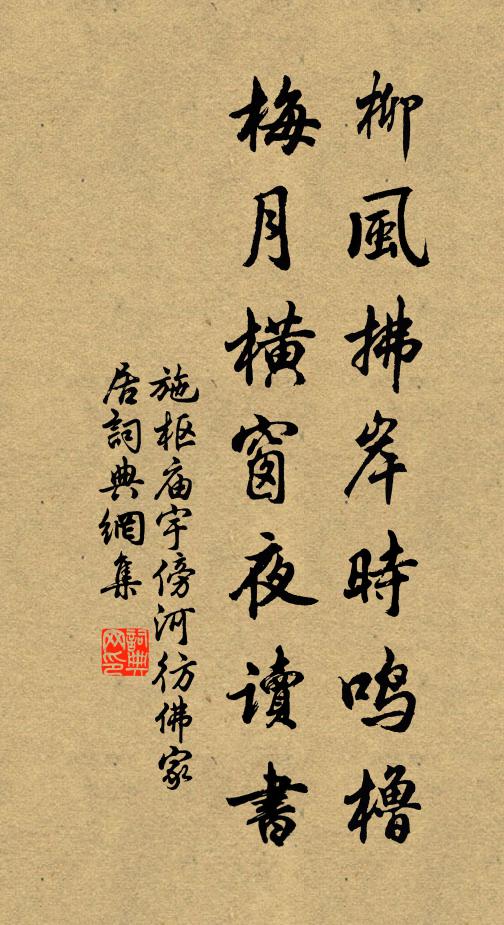 柳風拂岸時鸣櫓
梅月横窗夜讀書
施枢庙宇傍河彷佛家
居詞典網集
詞典
网印